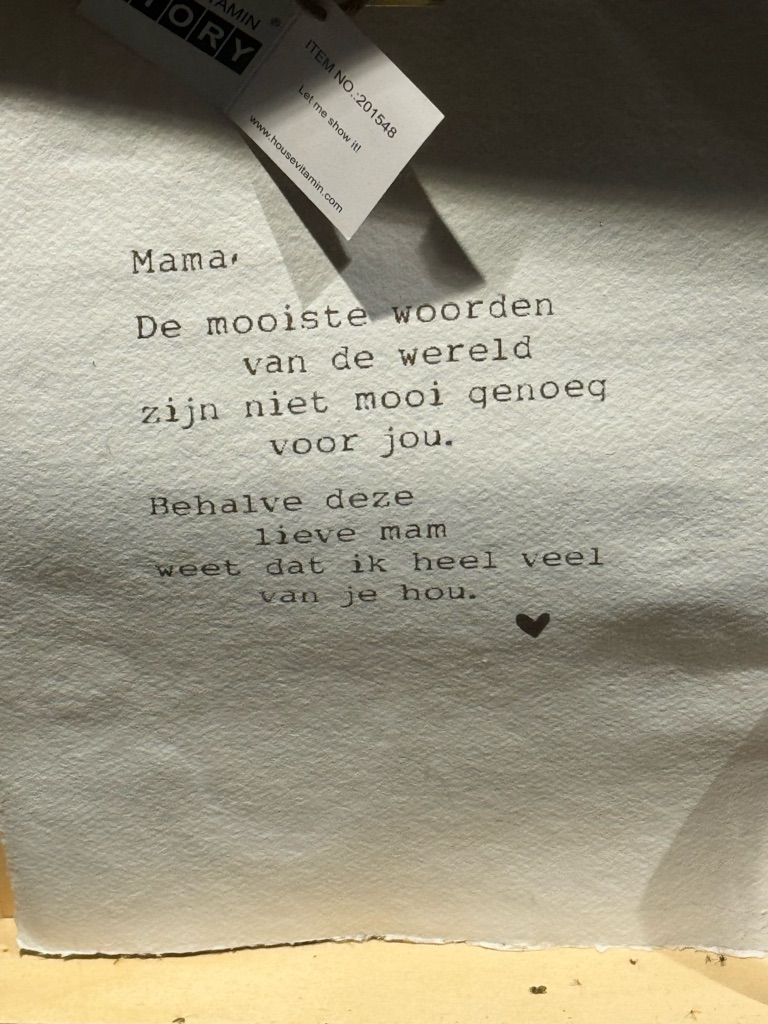 ITEM NO.:201548
Let me show it!
www.housevitamin.com
Mama,
De mooiste woorden
van de wereld
zijn niet mooi genoeg
voor jou.
Behalve deze
lieve mam
weet dat ik heel veel
van je hou.